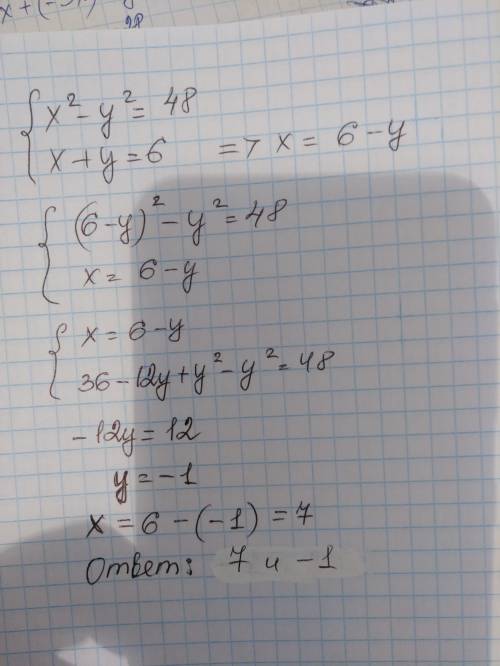 x² - y² = 48
x + y = 6 => x = 6 - y
(6 - y)² - y² = 48
x = 6 - y
x = 6 - y
36 - 12y + y² - y² = 48
- 12y = 12
y = -1
x = 6 - (-1) = 7
Ответ: 7 и -1